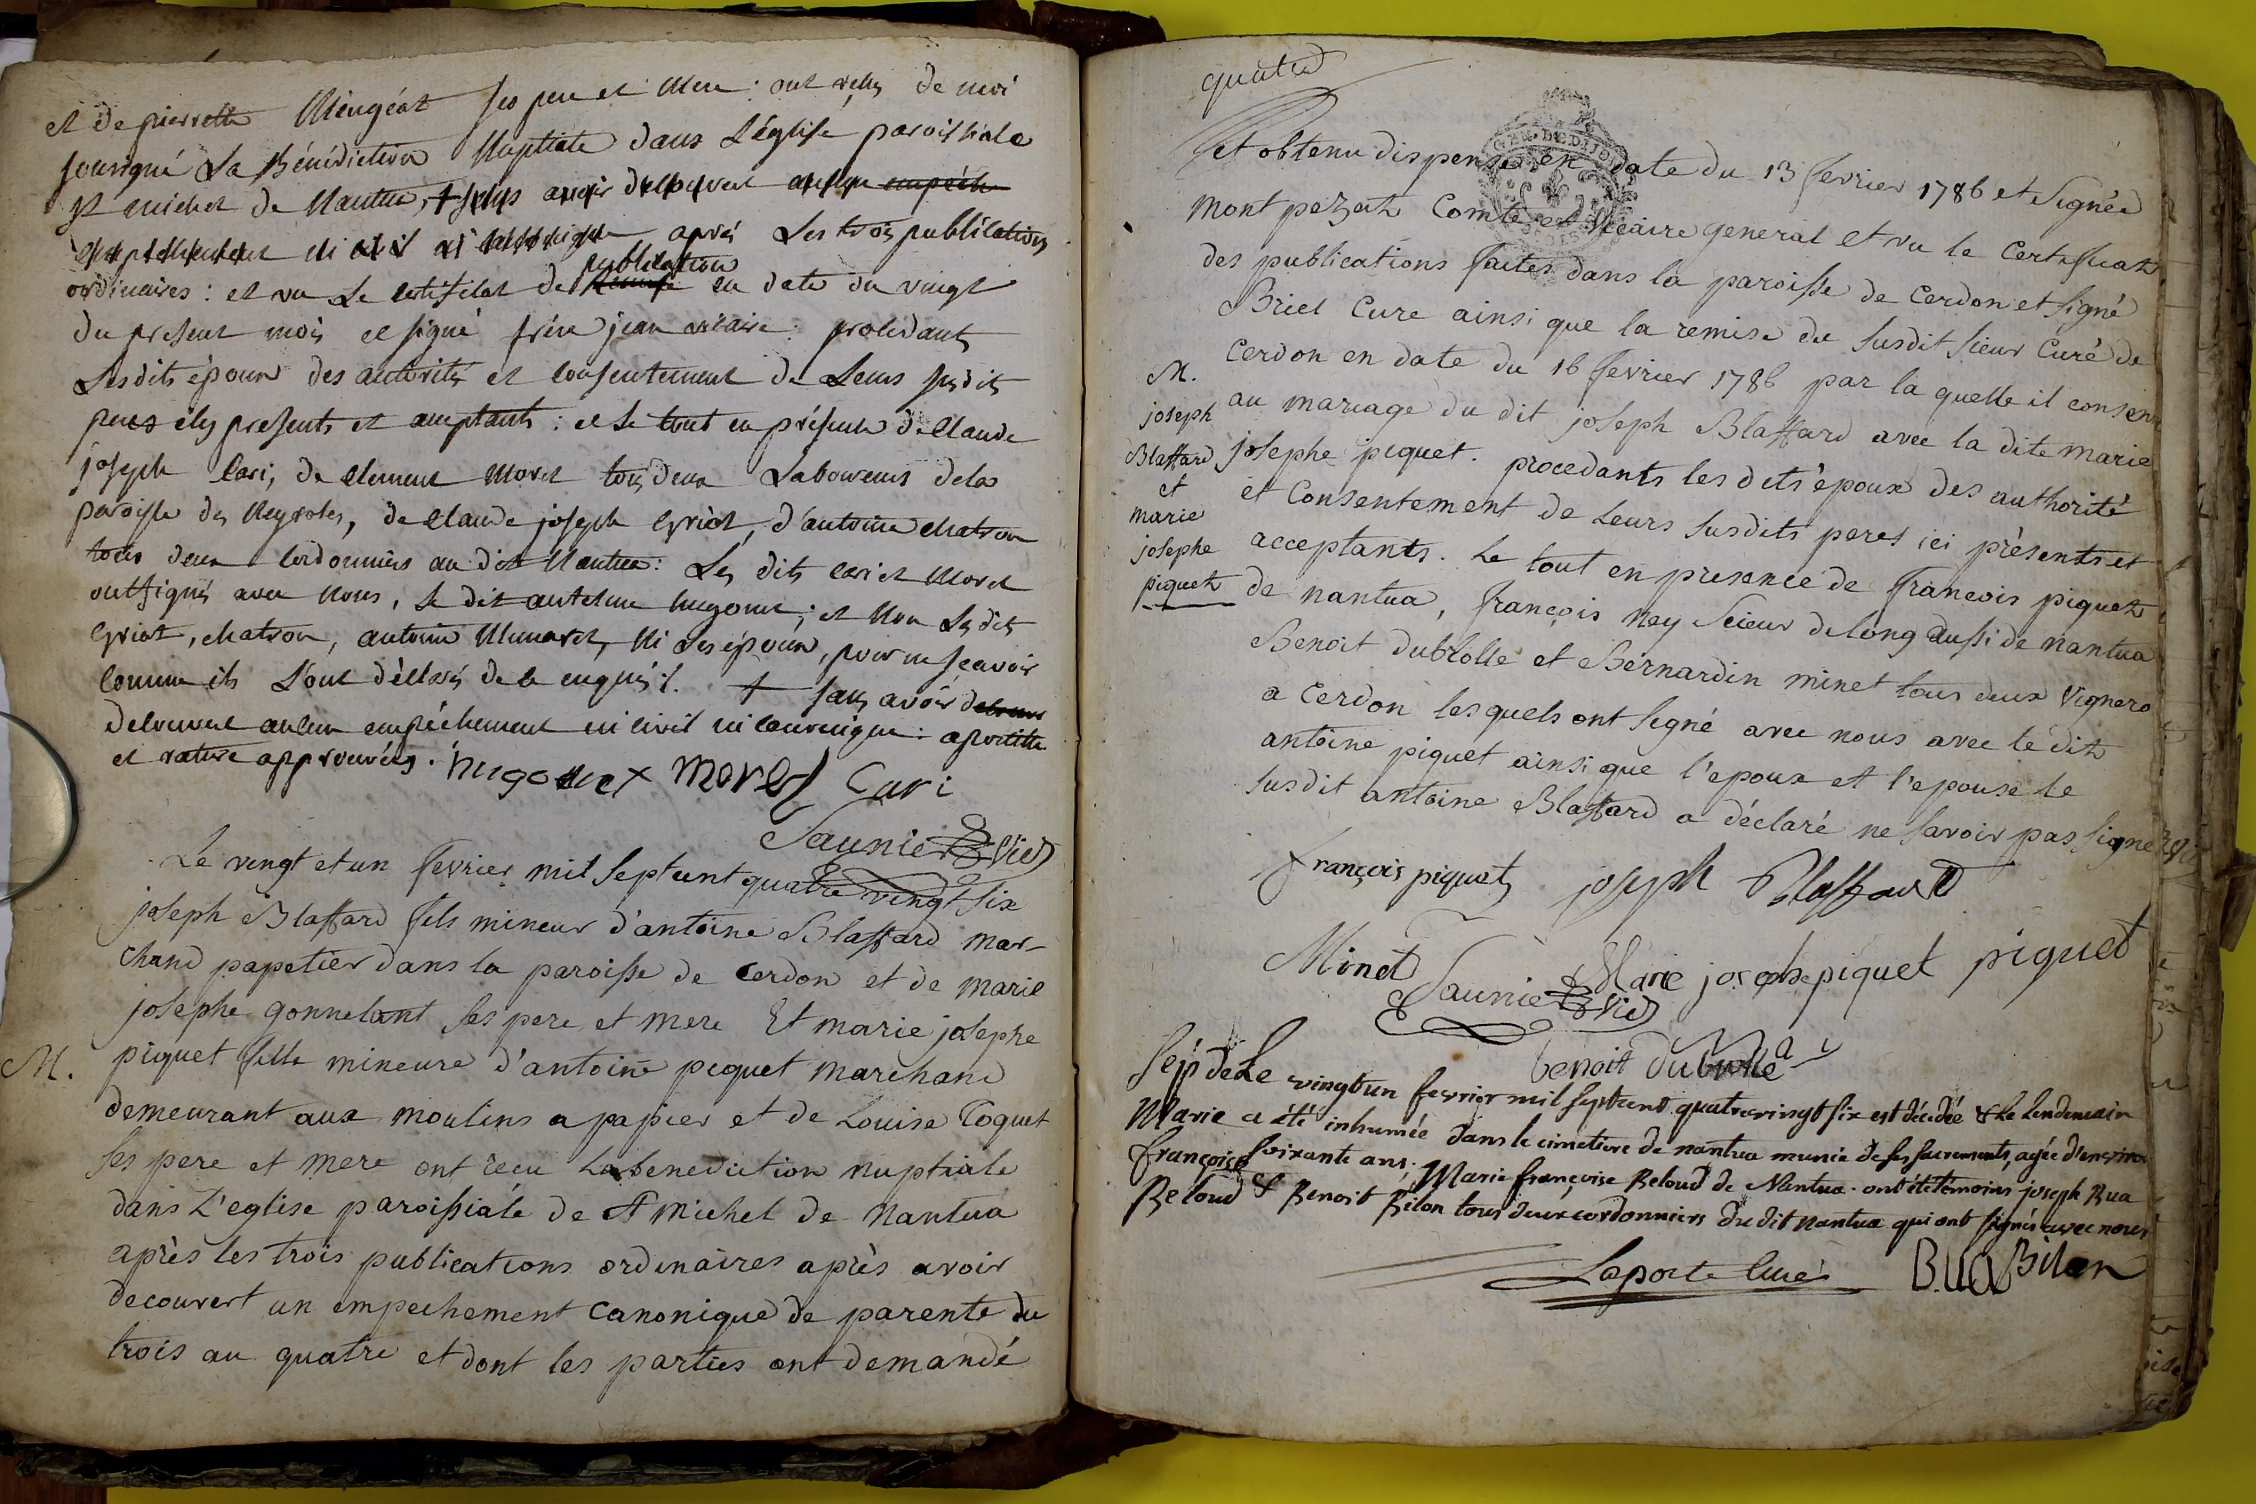 et de pierrette Mengéat ses pere et Mere : ont reçu de moi
sousigné La Bénédiction Nuptiale dans L'église paroissiale
St michel de Nantua, + sans avoir decouvert aucun empéche
empechement ni civil ni canonique après Les trois publications
ordinaires : et vu Le certificat de publication en date du vingt
du present mois et signé frère jean vicaire : procedants
Lesdits époux des autorités et consentement de Leurs susdits
peres ici presents et acceptants : et Le tout en présence de Claude
joseph Cari, de Clement Moret tous deux Laboureurs de la
paroisse des Neyroles, de Claude joseph Griot, d'antoine chatron
tous deux cordonniers au dit Nantua : Les dits Cari et Moret
ont signés avec Nous, Le dit antelme hugonnet ; et Non Les dits
Griot, chatron, antoine Munaret, Ni Les époux, pour ne sçavoir
comme ils L'ont déclarés de ce enquis. + sans avoir decouv
decouvert aucun empéchement ni civil ni canonique : apostille
et rature approuvées. hugonnet Moret Cari
Saunier Vic
Le vingt et un fevrier mil sept cent quatre vingt six
joseph Blaffard fils mineur d'antoine Blaffard mar-
chand papetier dans la paroisse de Cerdon et de marie
josephe gonnelant ses pere et mere Et marie josephe
M. piquet fille mineure d'antoine piquet marchand
demeurant aux moulins a papier et de Louise Toquet
ses pere et mere ont recu La benediction nuptiale
dans L'eglise paroissiale de St michel de Nantua
après les trois publications ordinaires après avoir
decouvert un empechement canonique de parenté du
trois au quatre et dont les parties ont demandé
quatre
et obtenu dispense en date du 13 fevrier 1786 et signée
GEN. DE DIJON
Montpezat Comte et Vicaire general et vu le certificat
des publications faites dans la paroisse de Cerdon et signé
Briel Cure ainsi que la remise du susdit sieur Curé de
Cerdon en date du 16 fevrier 1786 par la quelle il consent
au mariage du dit joseph Blaffard avec la dite marie
josephe piquet. procedants les dits époux des authorité
et Consentement de Leurs susdits peres ici prèsents et
acceptants. Le tout en presence de francois piquet
de nantua, françois Ney scieur de long aussi de nantua
Benoit dubrolle et Bernardin minet tous deux Vignero
a Cerdon lesquels ont signé avec nous avec le dit
antoine piquet ainsi que l'epoux et l'epouse le
susdit antoine Blaffard a déclaré ne savoir pas signer
M.
joseph
Blaffard
et
marie
josephe
piquet
françois piquet joseph Blaffard
Minet Saunier Vic Marie josephe piquet piquet
benoit dubrolle
Sép de
Marie
françoise
Beloud
Le vingt un fevrier mil sept cent quatre vingt six est décedée & Le Lendemain
a été inhumée dans le cimetiere de nantua munie de ses sacrements, agée d'environ
soixante ans ; Marie françoise Beloud de Nantua. ont été témoins joseph Bua
& Benoit Bilon tous deux cordonniers du dit nantua qui ont signés avec nous
Laporte Curé Bua Bilon